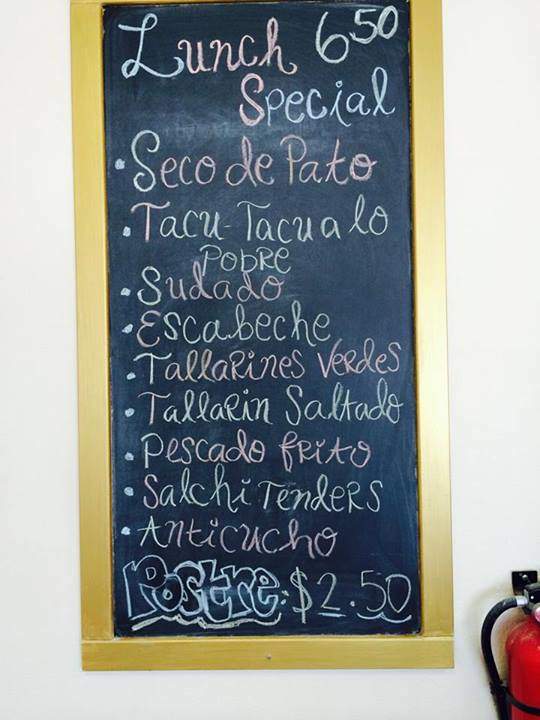 Lunch 6 50
Special
• Seco de Pato
• Tacu-Tacu a lo
Pobre
• Sudado
• Escabeche
• Tallarines Verdes
• Tallarin Saltado
• Pescado frito
• SalchiTenders
• Anticucho
Postre: $2.50